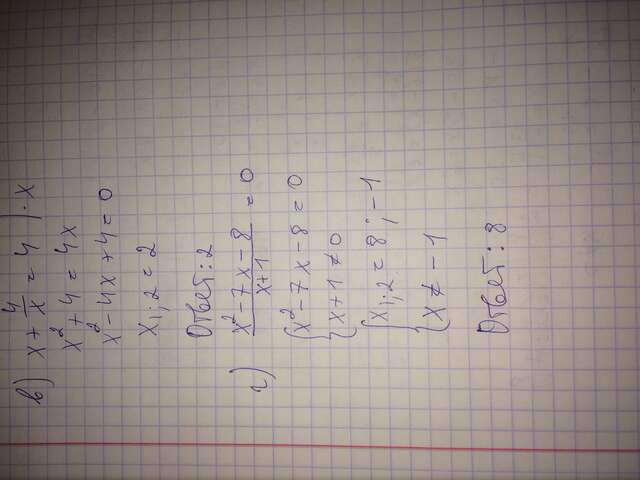 в) x + 4/x = 4 | · x
x² + 4 = 4x
x² - 4x + 4 = 0
x₁;₂ = 2
Ответ: 2
г) (x² - 7x - 8)/(x+1) = 0
{ x² - 7x - 8 = 0
x + 1 ≠ 0
{ x₁;₂ = 8; -1
x ≠ -1
Ответ: 8